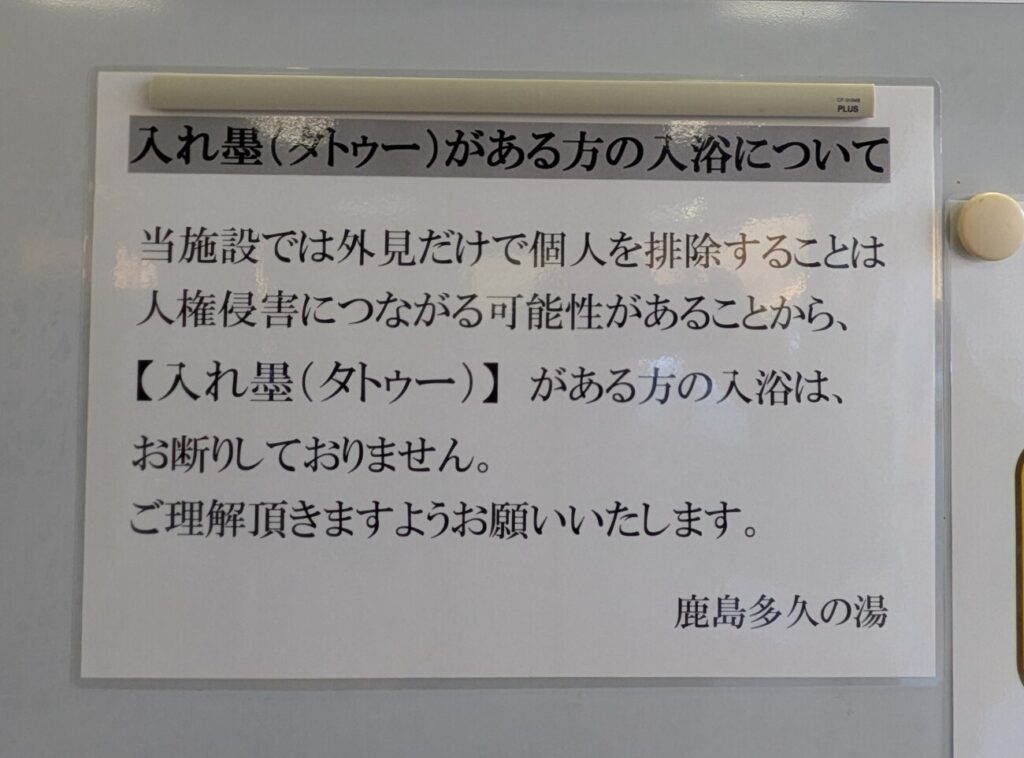 PLUS
入れ墨(タトゥー)がある方の入浴について
当施設では外見だけで個人を排除することは
人権侵害につながる可能性があることから、
【入れ墨(タトゥー)】がある方の入浴は、
お断りしておりません。
ご理解頂きますようお願いいたします。
鹿島多久の湯